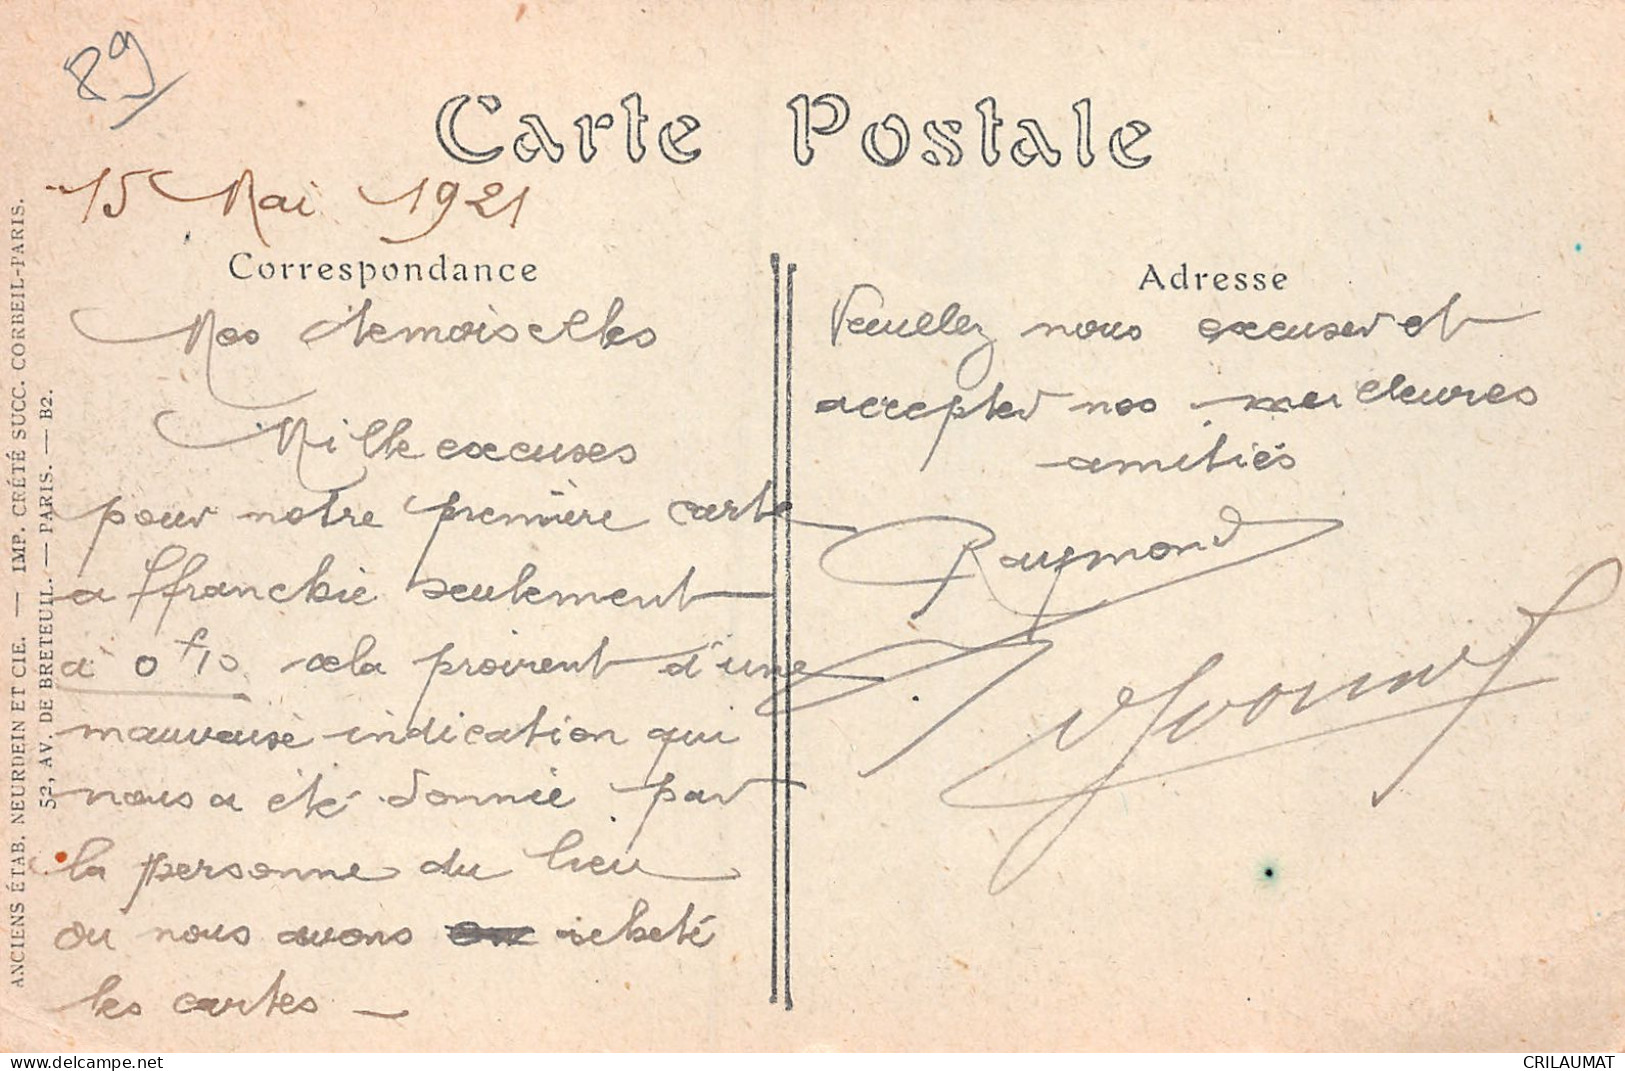 89
Carte Postale
15 Mai 1921
Correspondance
Mes demoiselles
Mille excuses
pour notre première carte
affranchie seulement
à 0f10 cela provient d'une
mauvaise indication qui
nous a été donnée par
la personne du lieu
ou nous avons acheté
les cartes —
Adresse
Veuillez nous excuser et
accepter nos meilleures
amitiés
Raymond
Yvonne
ANCIENS ÉTAB. NEURDEIN ET CIE. — IMP. CRÉTÉ SUCC. CORBEIL-PARIS.
52, AV. DE BRETEUIL. — PARIS. — B2.
www.delcampe.net
CRILAUMAT